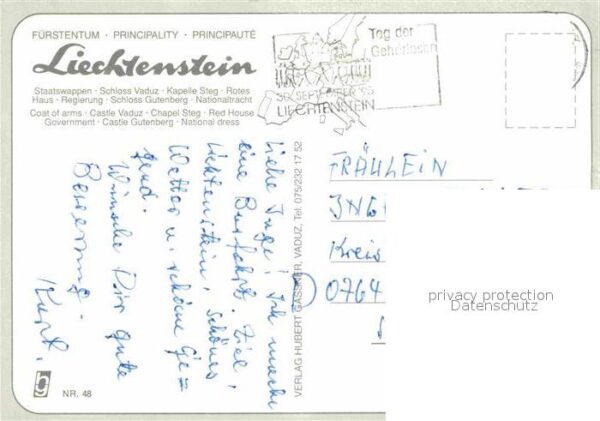 FÜRSTENTUM · PRINCIPALITY · PRINCIPAUTÉ
Liechtenstein
Staatswappen · Schloss Vaduz · Kapelle Steg · Rotes
Haus · Regierung · Schloss Gutenberg · Nationaltracht
Coat of arms · Castle Vaduz · Chapel Steg · Red House
Government · Castle Gutenberg · National dress
Tag der
Gehörlosen
30. SEPTEMBER '95
LIECHTENSTEIN
Liebe Inge! Ich mache
eine Busfahrt. Ziel:
Lichtenstein, schönes
Wetter u. schöne Ge=
gend.
Wünsche Dir gute
Besserung.
Kurt.
VERLAG HUBERT GASSNER, VADUZ, Tel. 075/232 17 52
FRÄULEIN
ING
Kreis
0764
privacy protection
Datenschutz
g
NR. 48